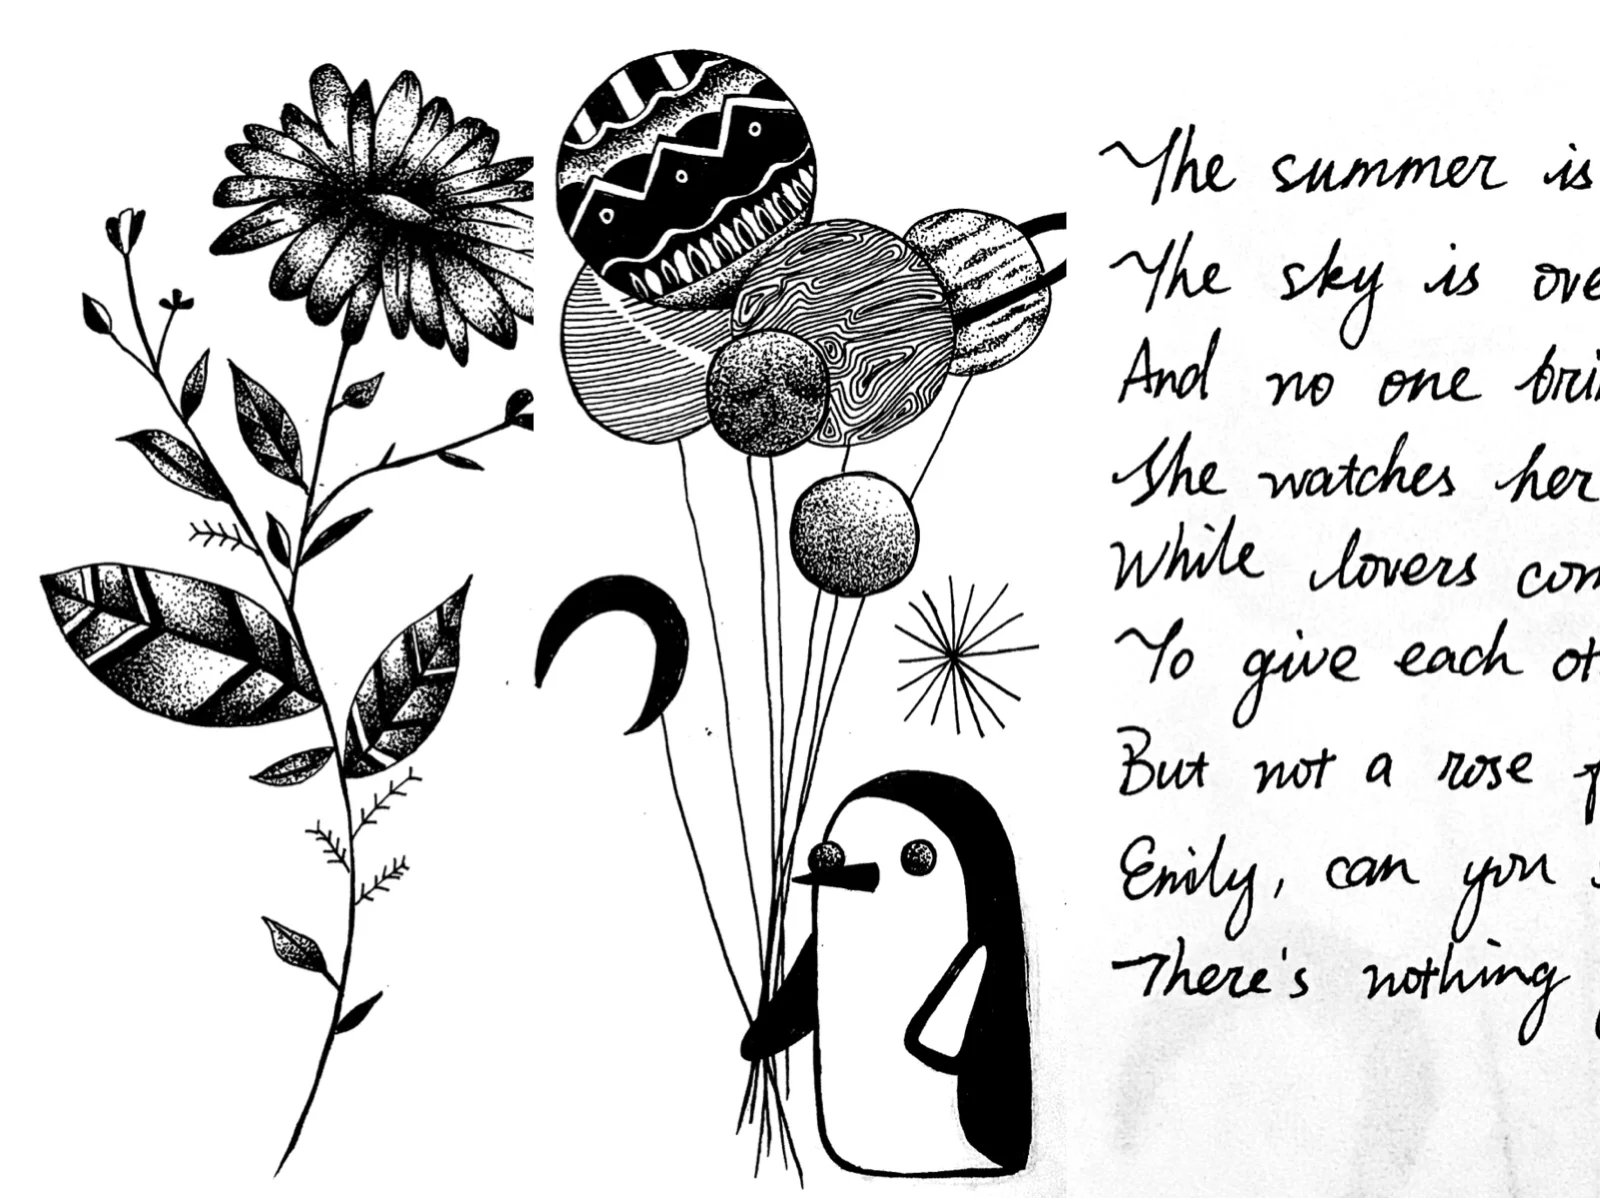 The summer is
The sky is
And no one
She watches her
While lovers
To give each
But not a rose
Emily, can you
There's nothing